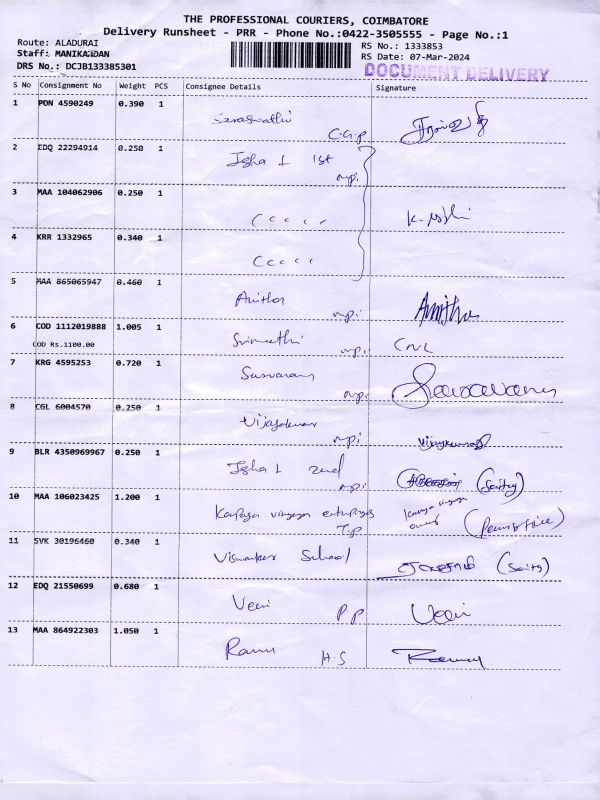 THE PROFESSIONAL COURIERS, COIMBATORE
Delivery Runsheet - PRR - Phone No.:0422-3505555 - Page No.:1
Route: ALADURAI
Staff: MANIKANDAN
DRS No.: DCJB133385301
RS No.: 1333853
RS Date: 07-Mar-2024
DOCUMENT DELIVERY
S No Consignment No Weight PCS Consignee Details Signature
1 PON 4590249 0.390 1 Saraswathi
C.G.P
2 EDQ 22294914 0.250 1 Isha L 1st
3 MAA 104062906 0.250 1
4 KRR 1332965 0.340 1
5 MAA 865065947 0.460 1 Anitha Anitha
6 COD 1112019888 1.005 1 Srimathi
COD Rs.1100.00
7 KRG 4595253 0.720 1 Saravanan
8 CGL 6004570 0.250 1 Vijayakumar
9 BLR 4350969967 0.250 1 Isha L 2nd
10 MAA 106023425 1.200 1 Karpaga vinayaga enterprises
T.P
11 SVK 30196460 0.340 1 School
12 EDQ 21550699 0.680 1 Veni P P Veni
13 MAA 864922303 1.050 1 Ramu H.S